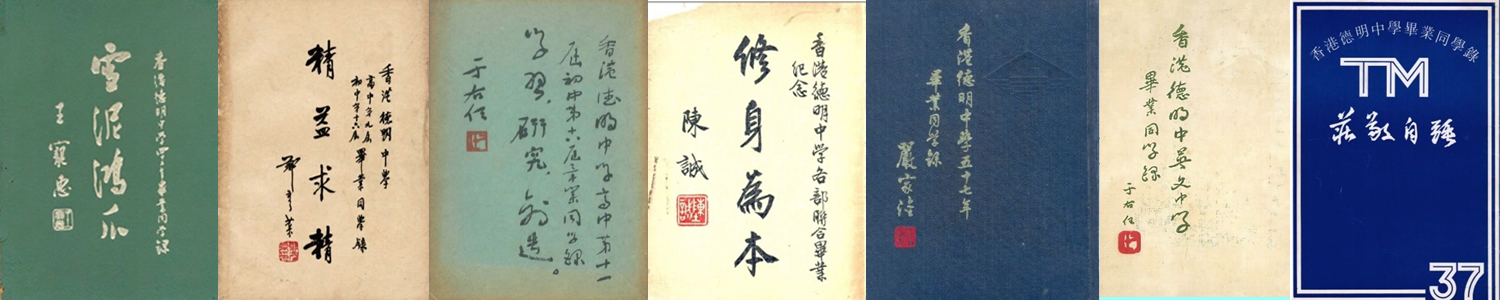 香港德明中學
畢業同學錄
雪泥鴻爪
王寵惠
香港德明中學
高中第九屆
初中第十六屆
畢業同學錄
精益求精
鄭彥棻
香港德明中学高中第十一
屆初中第十八屆畢業同学錄
学習、研究、創造。
于右任
香港德明中学各部聯合畢業
紀念
修身為本
陳誠
香港德明中學五十七年
畢業同學錄
嚴家淦
香港德明中英文中学
畢業同学錄
于右任
香港德明中學畢業同學錄
TM
莊敬自強
37